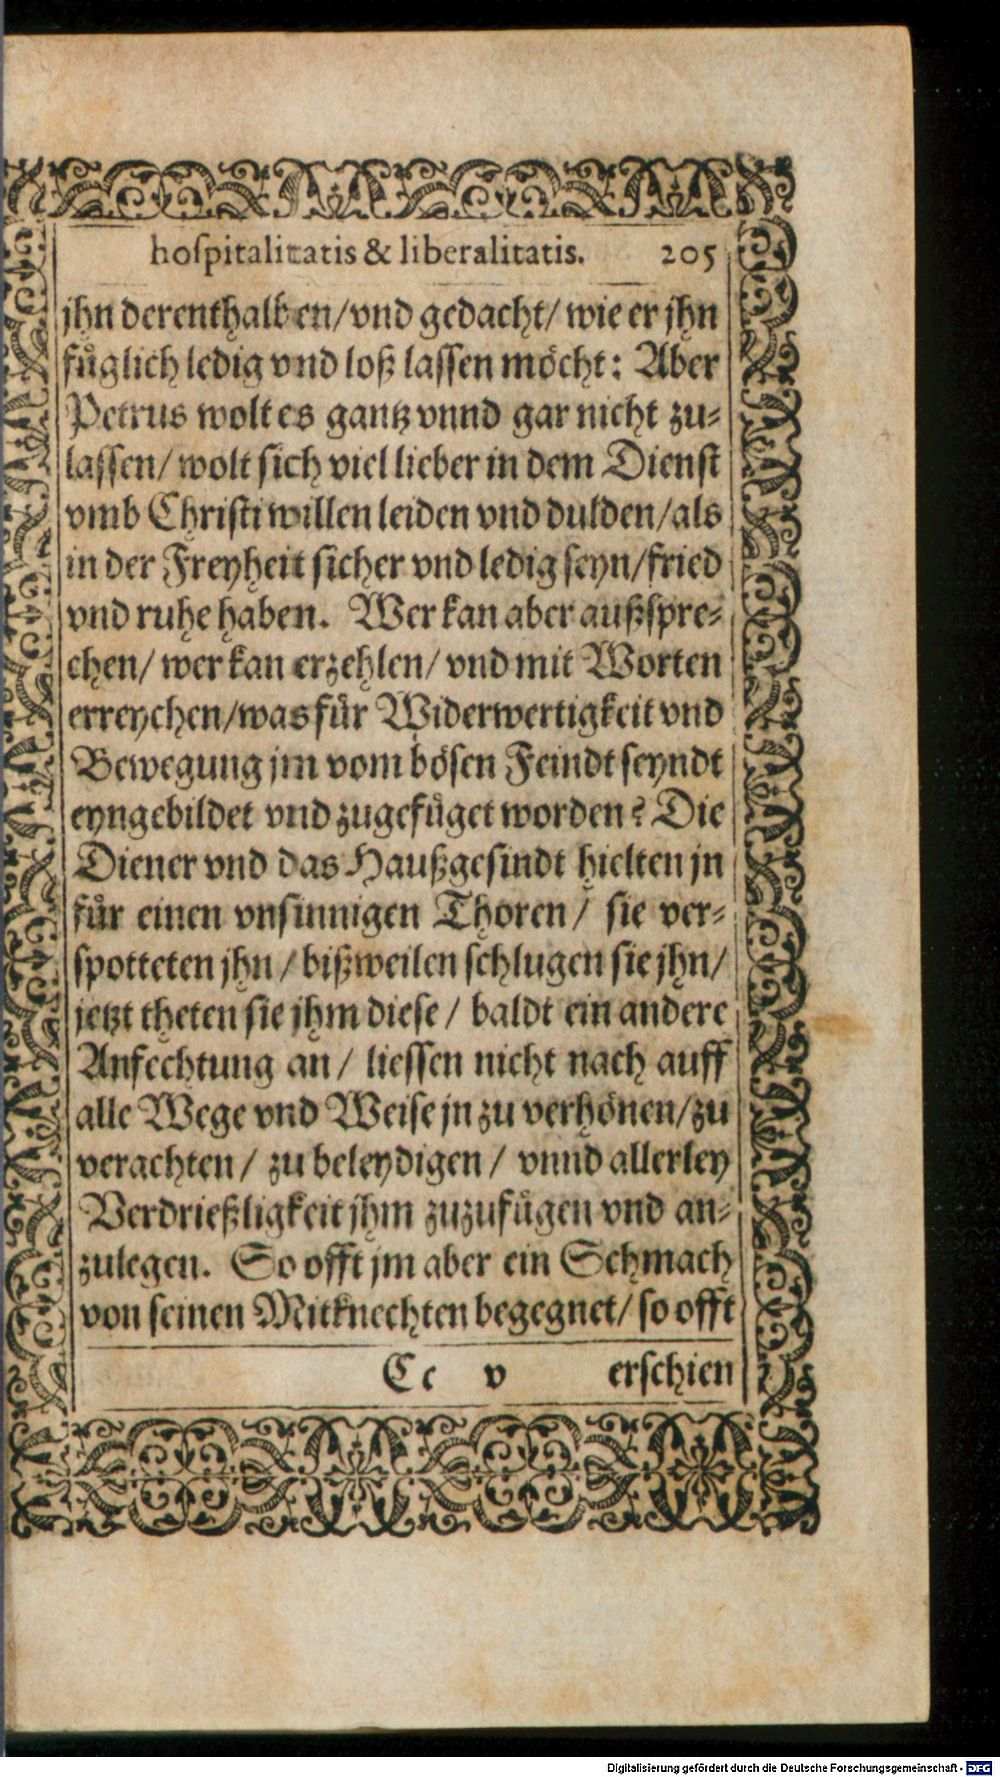 hoſpitalitatis & liberalitatis. 205
jhn derenthalben/vnd gedacht/ wie er jhn
fuͤglich ledig vnd loß laſſen moͤcht: Aber
Petrus wolt es gantz vnnd gar nicht zu-
laſſen/ wolt ſich viel lieber in dem Dienſt
vmb Chriſti willen leiden vnd dulden/als
in der Freyheit ſicher vnd ledig ſeyn/fried
vnd ruhe haben. Wer kan aber außſpre-
chen/ wer kan erzehlen/ vnd mit Worten
erreychen/was fuͤr Widerwertigkeit vnd
Bewegung jm vom boͤſen Feindt ſeyndt
eyngebildet vnd zugefuͤget worden? Die
Diener vnd das Haußgeſindt hielten jn
fuͤr einen vnſinnigen Thoren/ ſie ver-
ſpotteten jhn/ bißweilen ſchlugen ſie jhn/
jetzt theten ſie jhm dieſe/ baldt ein andere
Anfechtung an/ lieſſen nicht nach auff
alle Wege vnd Weiſe jn zu verhoͤnen/zu
verachten/ zu beleydigen/ vnnd allerley
Verdrießligkeit jhm zuzufuͤgen vnd an-
zulegen. So offt jm aber ein Schmach
von ſeinen Mitknechten begegnet/ ſo offt
Cc v erſchien
Digitalisierung gefördert durch die Deutsche Forschungsgemeinschaft - DFG